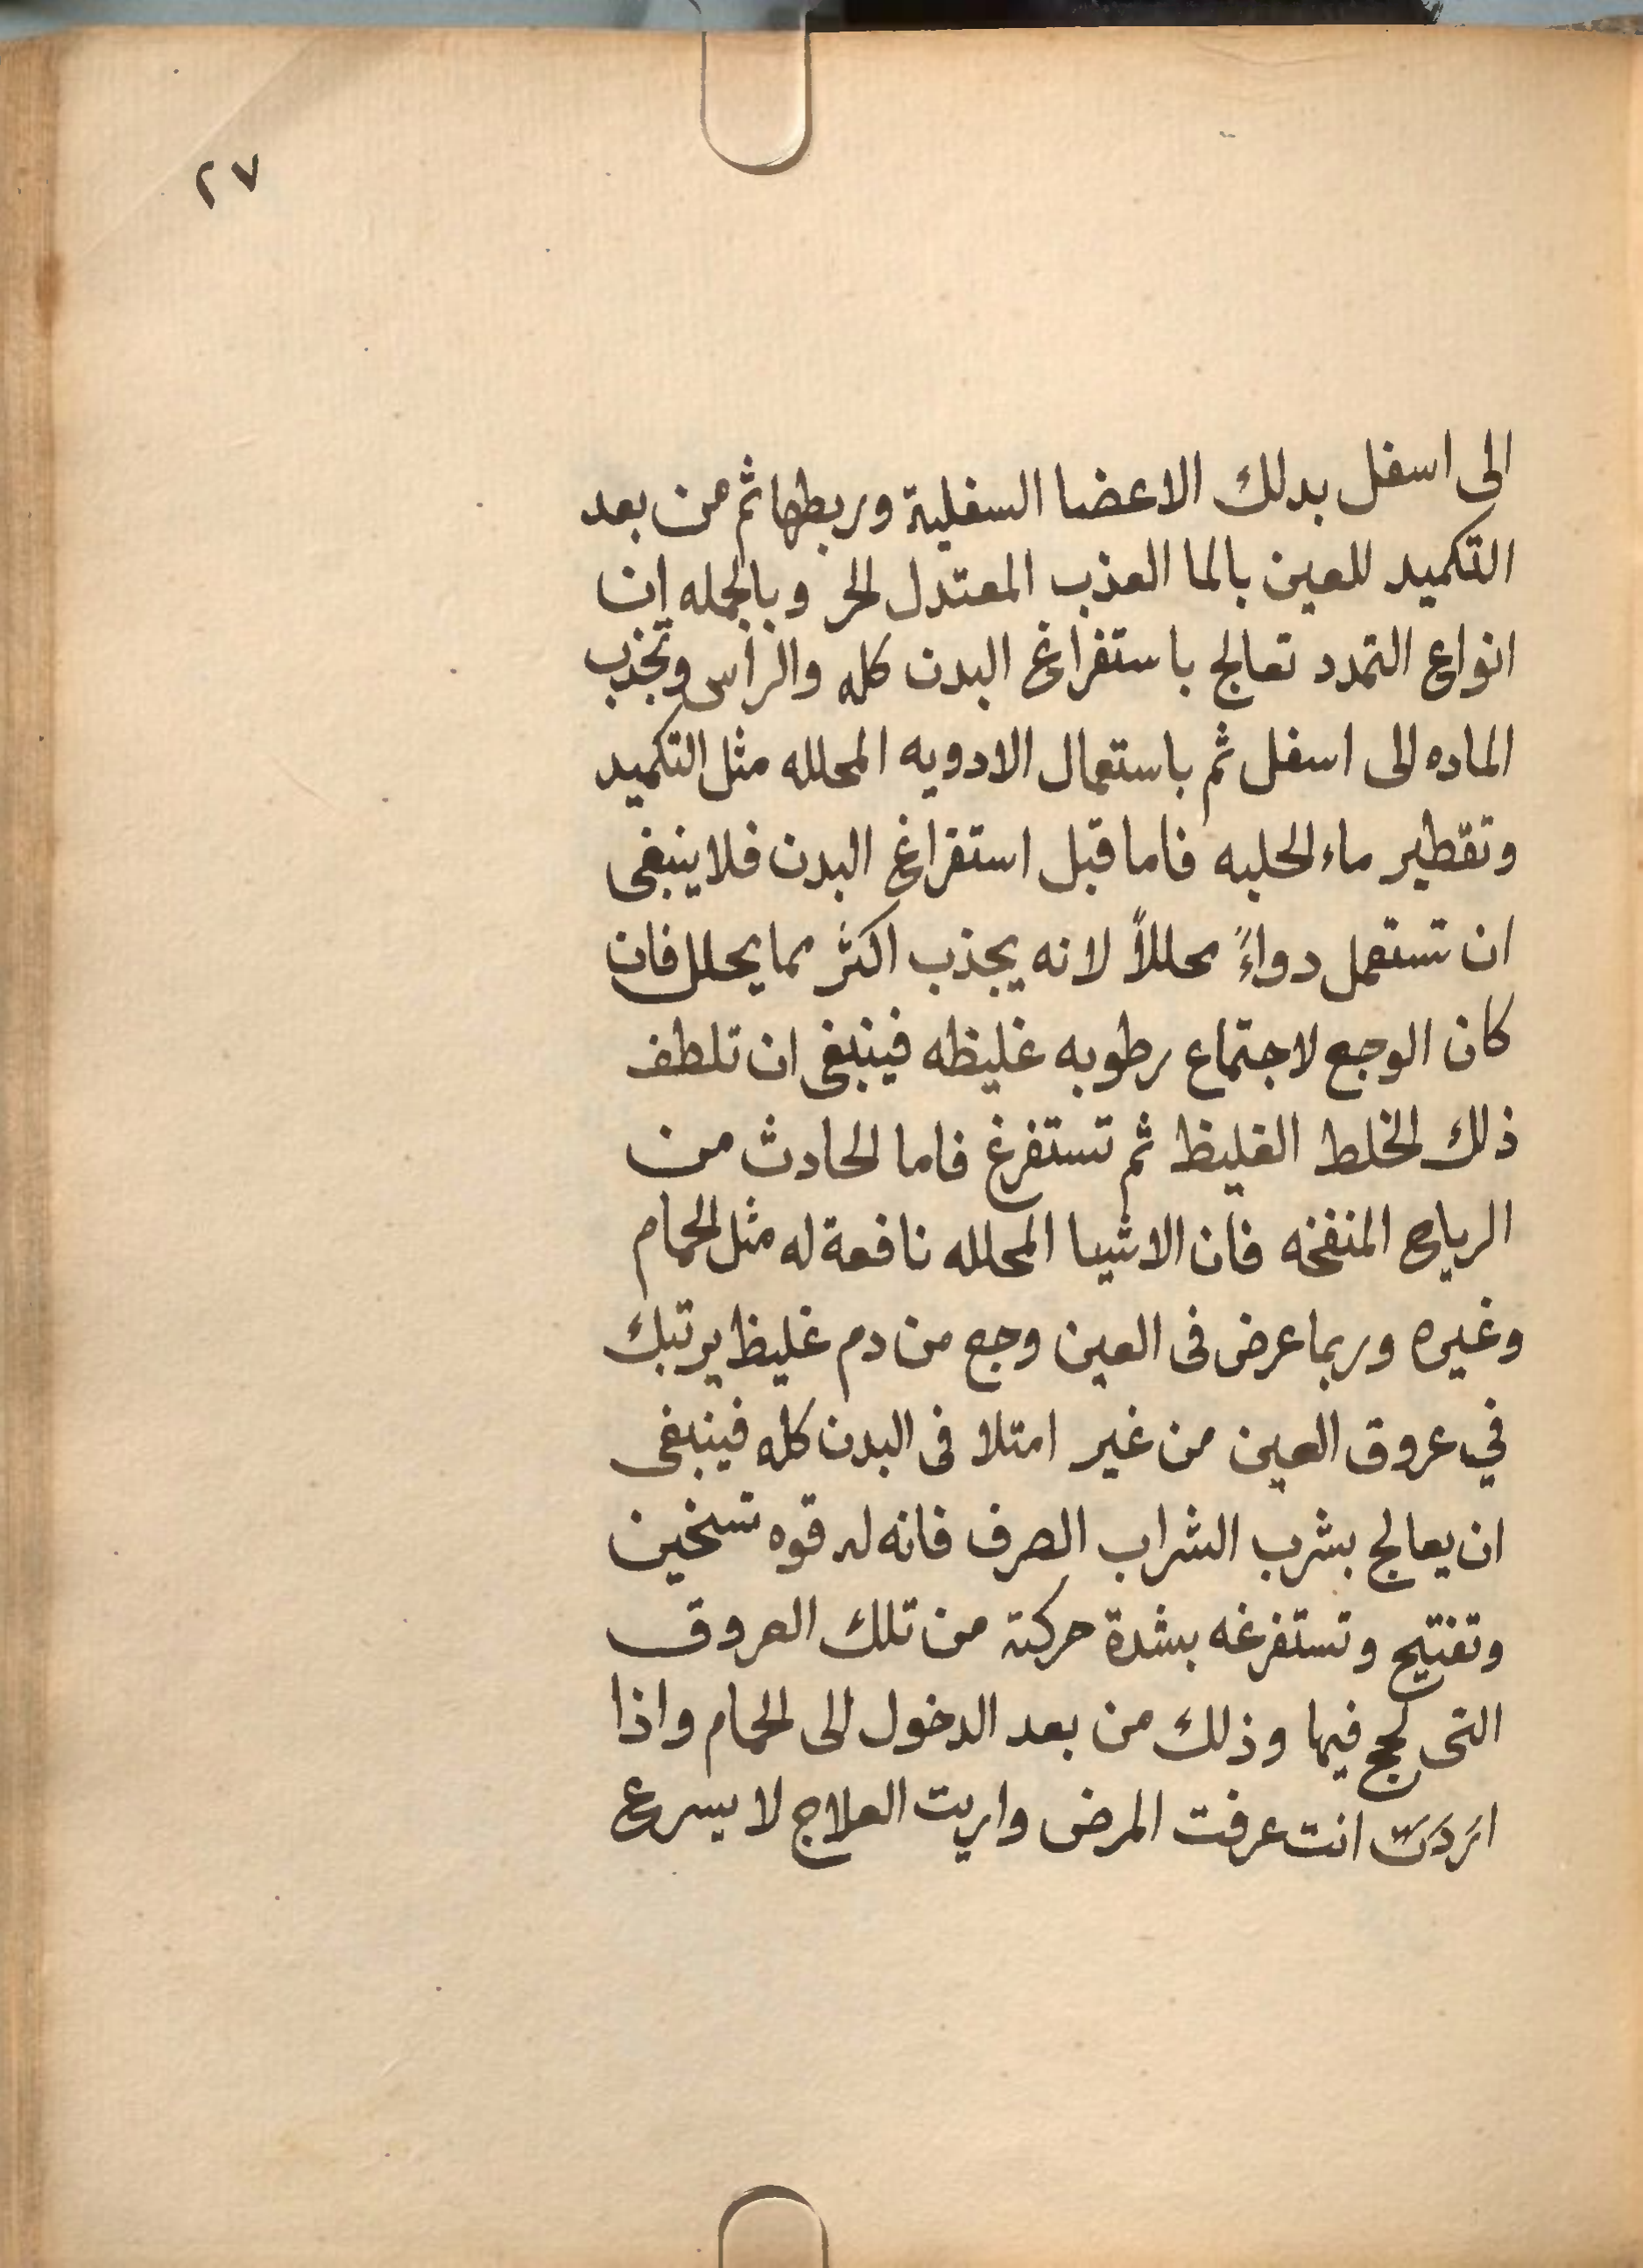 ٢٧
الى اسفل بدلك الاعضا السفلية وربطها ثم من بعد
التكميد للعين بالما العذب المعتدل الحر وبالجمله ان
انواع التمدد تعالج باستفراغ البدن كله والراس وتجذب
الماده الى اسفل ثم باستعمال الادويه المحلله مثل التكميد
وتقطير ماء الحلبه فاما قبل استفراغ البدن فلا ينبغى
ان تستعمل دواءً محللاً لانه يجذب اكثر مما يحلل فان
كان الوجع لاجتماع رطوبه غليظه فينبغى ان تلطف
ذلك الخلط الغليظ ثم تستفرغ فاما الحادث من
الرياح المنفخه فان الاشيا المحلله نافعة له مثل الحمام
وغيره وربما عرض فى العين وجع من دم غليظ يرتبك
في عروق العين من غير امتلا فى البدن كله فينبغى
ان يعالج بشرب الشراب الصرف فانه له قوه تسخين
وتفتيح وتستفرغه بشدة حركته من تلك العروق
التى لحج فيها وذلك من بعد الدخول الى الحمام واذا
اردت انت عرفت المرض واريت العلاج لا يسرع